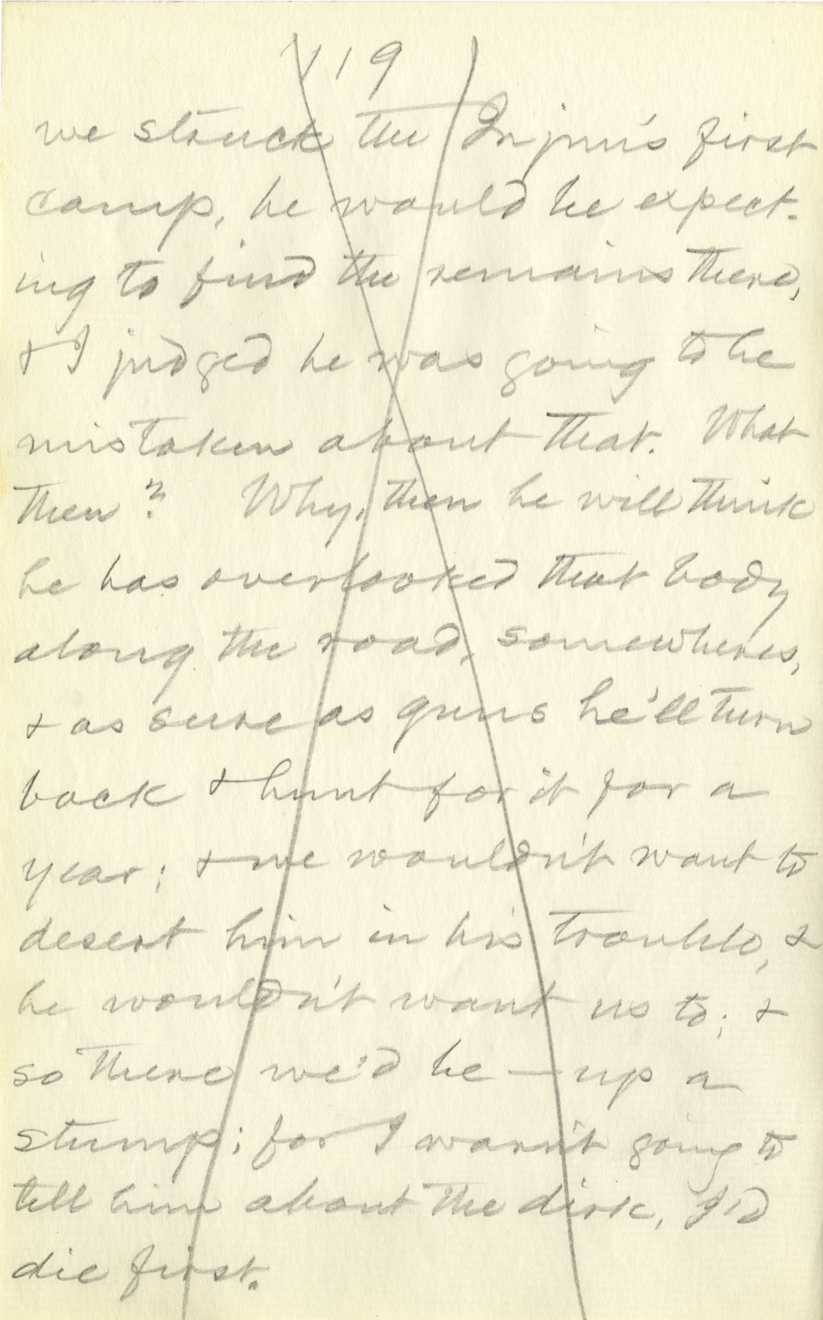 119
we struck the Injun's first
camp, he would be expect-
ing to find the remains there,
& I judged he was going to be
mistaken about that. What
then? Why, then he will think
he has overlooked that body
along the road, somewheres,
& as sure as guns he'll turn
back & hunt for it for a
year; & we wouldn't want to
desert him in his trouble, &
he wouldn't want us to; &
so there we'd be — up a
stump; for I warn't going to
tell him about the dirk, I'd
die first.